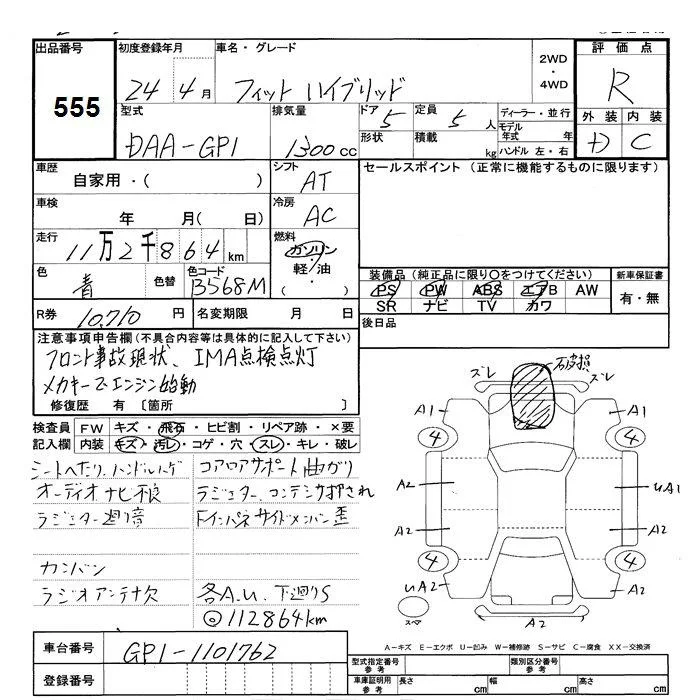 出品番号 初度登録年月 車名・グレード 2WD・4WD 評価点
555 24 4月 フィット ハイブリッド R
型式 排気量 ドア 定員 ディーラー・並行 外装 内装
DAA-GP1 1300cc 5 5人 モデル年式 年 D C
形状 積載 kg ハンドル 左・右
車歴 シフト セールスポイント (正常に機能するものに限ります)
自家用・( ) AT
車検 冷房
年 月( 日) AC
走行 燃料
11万2千864km ガソリン・軽油・( )
色 色替 色コード 装備品 (純正品に限り○をつけてください) 新車保証書
青 B568M PS PW ABS エアB AW 有・無
SR ナビ TV カワ
R券 10,710円 名変期限 月 日 後日品
注意事項申告欄(不具合内容等は具体的に記入して下さい)
フロント事故現状、IMA点検点灯
メカキーでエンジン始動
修復歴 有 〔箇所 〕
検査員 FW キズ・飛石・ヒビ割・リペア跡・×要
記入欄 内装 キズ・汚レ・コゲ・穴・スレ・キレ・破レ
シートヘたり、ハンドルハゲ コアロアサポート曲がり
オーディオナビ不良 ラジエター、コンデンサ押され
ラジエター廻り音 Fインパネサイドメンバー歪
カンバン
ラジオアンテナ欠 各A.U 下廻りS
◎112864km
ズレ 破損 ズレ
A1 A1
4 4
A2 UA1
A2 A2
4 4
UA2
スペア A2
A-キズ E-エクボ U-凹み W-補修跡 S-サビ C-腐食 XX-交換済
車台番号 GP1-1101762
型式指定番号 参考 類別区分番号 参考
登録番号 車庫証明用 参考 長さ cm 幅 cm 高さ cm